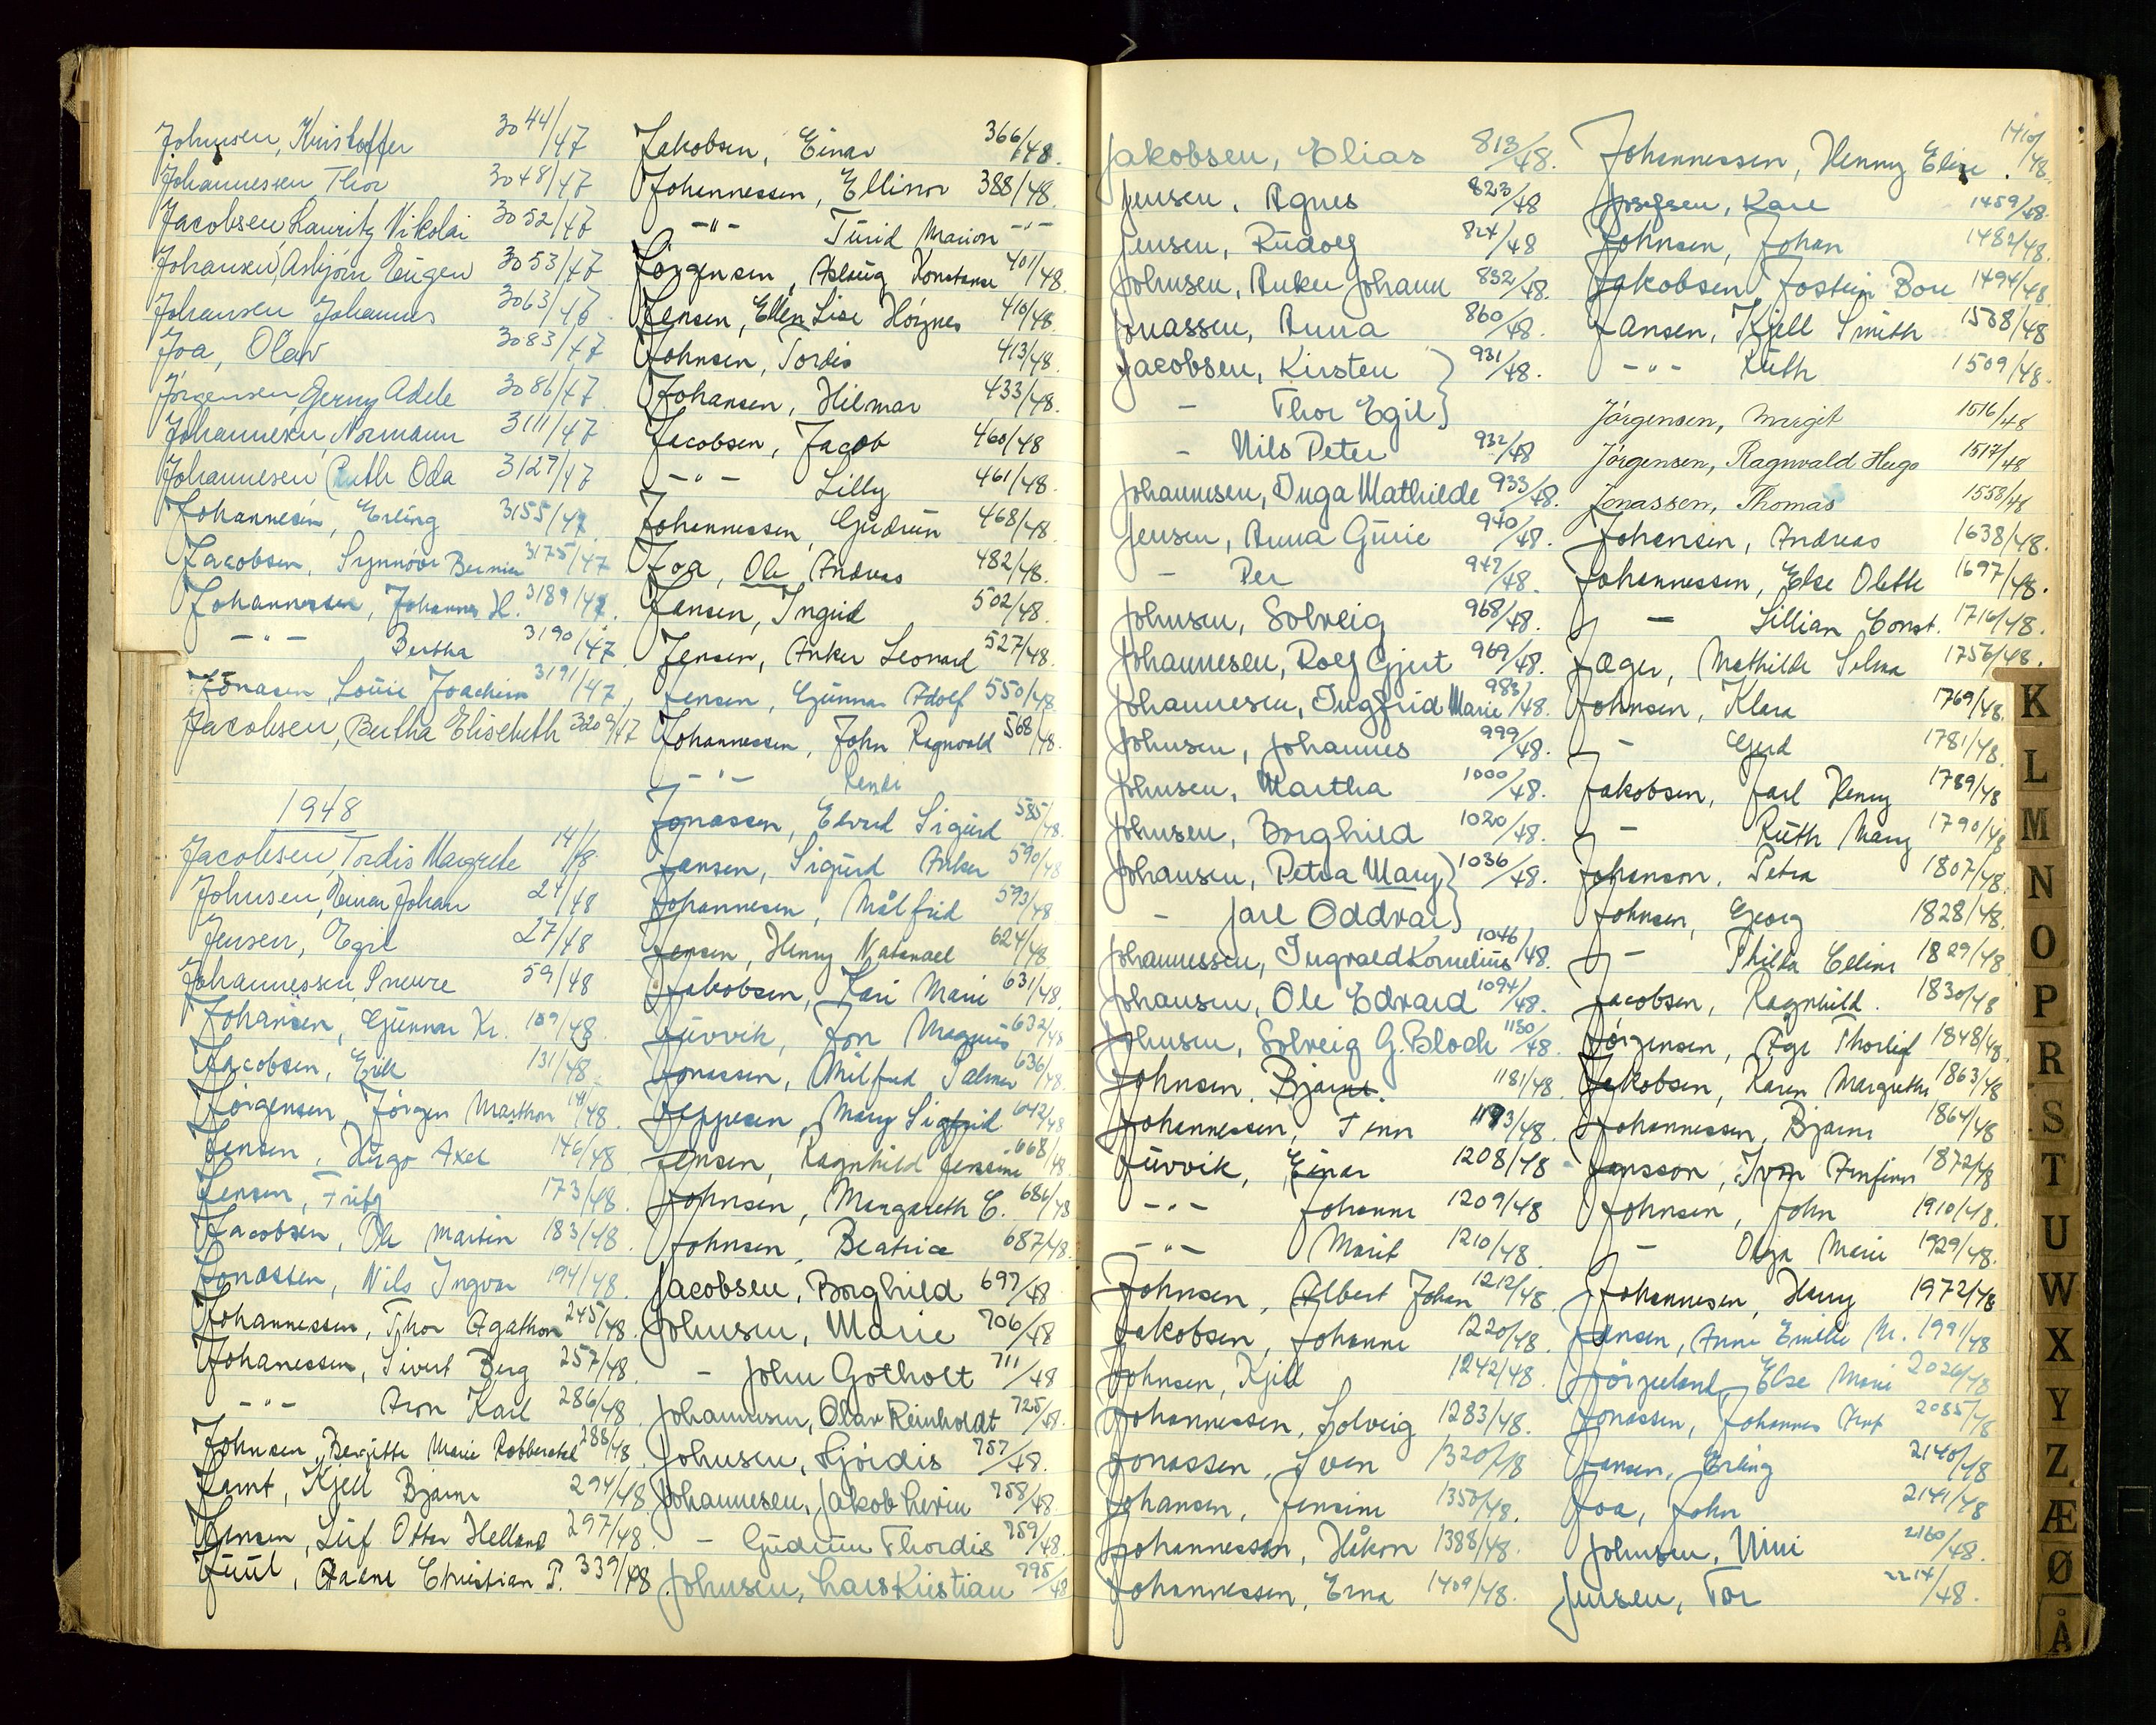 Johnsen, Kristoffer 3044/47
Johannessen Thor 3048/47
Jacobsen Lauritz Nikolai 3052/47
Johansen, Asbjørn Eugen 3053/47
Johansen Johannes 3063/47
Joa, Olav 3083/47
Jörgensen, Gerny Adele 3086/47
Johannesen, Normann 3111/47
Johannesen Ruth Oda 3127/47
Johannesen, Erling 3155/47
Jacobsen, Synnöve 3175/47
Johannessen, Johannes H. 3189/47
-"- Bertha 3190/47
Jonasen, Louis Joachim 3191/47
Jacobsen, Bertha Elisebeth 3209/47
1948
Jacobsen, Tordis Margrethe 14/48
Johnsen, Einar Johan 24/48
Jensen, Egil 27/48
Johannessen, Snorre 59/48
Johansen, Gunnar Kr. 109/48
Jacobsen, Erik 131/48
Jörgensen, Jörgen Marthon 141/48
Jensen, Hugo Axel 146/48
Jensen, Fritz 173/48
Jacobsen, Ole Martin 183/48
Jonassen, Nils Ingvar 194/48
Johannessen, Thor Agathon 245/48
Johanessen, Sivert Berg 257/48
-"- Aron Karl 286/48
Johnsen, Bergitte Marie 288/48
Kjell Bjarne 294/48
Jensen, Leif Otto Helland 297/48
Juul, Christian P. 339/48
Jakobsen, Einar 366/48.
Johannessen, Ellinor 388/48
-"- Turid Marion -"-
Jörgensen, Aslaug Konstanse 401/48.
Jensen, Ellen Lise Höynes 410/48
Johnsen, Tordis 413/48.
Johansen, Hilmar 433/48.
Jacobsen, Jacob 460/48
-"- Lilly 461/48.
Johannessen, Gudrun 468/48
Joa, Ole Andreas 482/48.
Jansen, Ingrid 502/48.
Jensen, Anker Leonard 527/48.
Jensen, Gunnar Adolf 550/48
Johannessen, John Ragnvald 568/48.
-"- Randi
Jonassen, Edvard Sigurd 585/48.
Jansen, Sigurd Anker 590/48
Johannesen, Målfrid 593/48
Jensen, Henry Natanael 624/48
Jakobsen, Kari Marie 631/48.
Juvvik, Jon Magnus 632/48
Jonassen, Milfred Salmer 636/48.
Jeppesen, Mary Sigfrid 642/48
Jensen, Ragnhild Jenssine 668/48
Johnsen, Margareth C. 686/48
Johnsen, Beatrice 687/48.
Jacobsen, Borghild 697/48
Johnsen, Marie 706/48
- John Gotholt 711/48
Johannesen, Olav Reinholdt 725/48.
Johnsen, Hjördis 757/48.
Johannesen, Jakob Levin 758/48.
- Gudrun Thordis 759/48.
Johnsen, Lars Kristian 795/48
Jakobsen, Elias 813/48.
Jensen, Agnes 823/48
Jensen, Rudolf 824/48
Johnsen, Anker Johann 832/48.
Jonassen, Anna 860/48.
Jacobsen, Kirsten 931/48.
- Thor Egil
- Nils Peter 932/48
Johannesen, Inga Mathilde 933/48.
Jensen, Anna Gurie 940/48.
- Per 947/48.
Johnsen, Solveig 968/48.
Johannesen, Rolf Gjert 969/48.
Johannesen, Ingfrid Marie 983/48.
Johnsen, Johannes 999/48.
Johnsen, Martha 1000/48.
Johnsen, Borghild 1020/48.
Johansen, Petra Mary 1036/48.
- Jarl Oddvar
Johannessen, Ingvald Kornelius 1046/48.
Johansen, Ole Edvard 1094/48.
Johnsen, Solveig G. Bloch 1150/48
Johnsen, Bjarne. 1181/48
Johannessen, Tenn 1193/48.
Juvvik, Einar 1208/48
-"- Johanne 1209/48
-"- Marit 1210/48
Johnsen, Albert Johan 1212/48.
Jakobsen, Johanne 1220/48.
Johnsen, Kjell 1242/48
Johannessen, Solveig 1283/48.
Jonassen, Sven 1320/48
Johansen, Jensine 1350/48.
Johannessen, Håkon 1388/48.
Johannessen, Erna 1409/48.
Johannessen, Henny Elise 1410/48.
Josefsen, Kare 1459/48.
Johnsen, Johan 1482/48.
Jakobsen Jostein Bore 1494/48
Jansen, Kjell Smith 1508/48
-"- Ruth 1509/48.
Jörgensen, Margit 1516/48
Jörgensen, Ragnvald Hugo 1517/48
Jonassen, Thomas 1558/48
Johansen, Andreas 1638/48.
Johannessen, Else Olette 1697/48.
- Lillian Const. 1716/48.
Jæger, Mathilde Selma 1756/48.
Johnsen, Klara 1769/48.
- Gerd 1781/48.
Jakobsen, Jarl Henry 1789/48
- Ruth Mary 1790/48
Johanson, Petra 1807/48.
Johnsen, Georg 1828/48.
- Thilda Elline 1829/48
Jacobsen, Ragnhild. 1830/48
Jörgensen, Åge Thorleif 1848/48.
Jakobsen, Karen Margrethe 1863/48
Johannessen, Bjarne 1864/48
Jansson, Ivar Arnfinn 1872/48
Johnsen, John 1910/48.
- Olga Marie 1929/48.
Johannesen, Harry 1972/48
Jansen, Anne Emilie M. 1991/48
Jörpeland, Else Marie 2026/48
Jonassen, Johannes Arnt 2085/48
Jansen, Erling 2140/48
Joa, John 2141/48
Johnsen, Nini 2160/48.
Jensen, Tor 2214/48.
K
L
M
N
O
P
R
S
T
U
W
X
Y
Z
Æ
Ø
Å